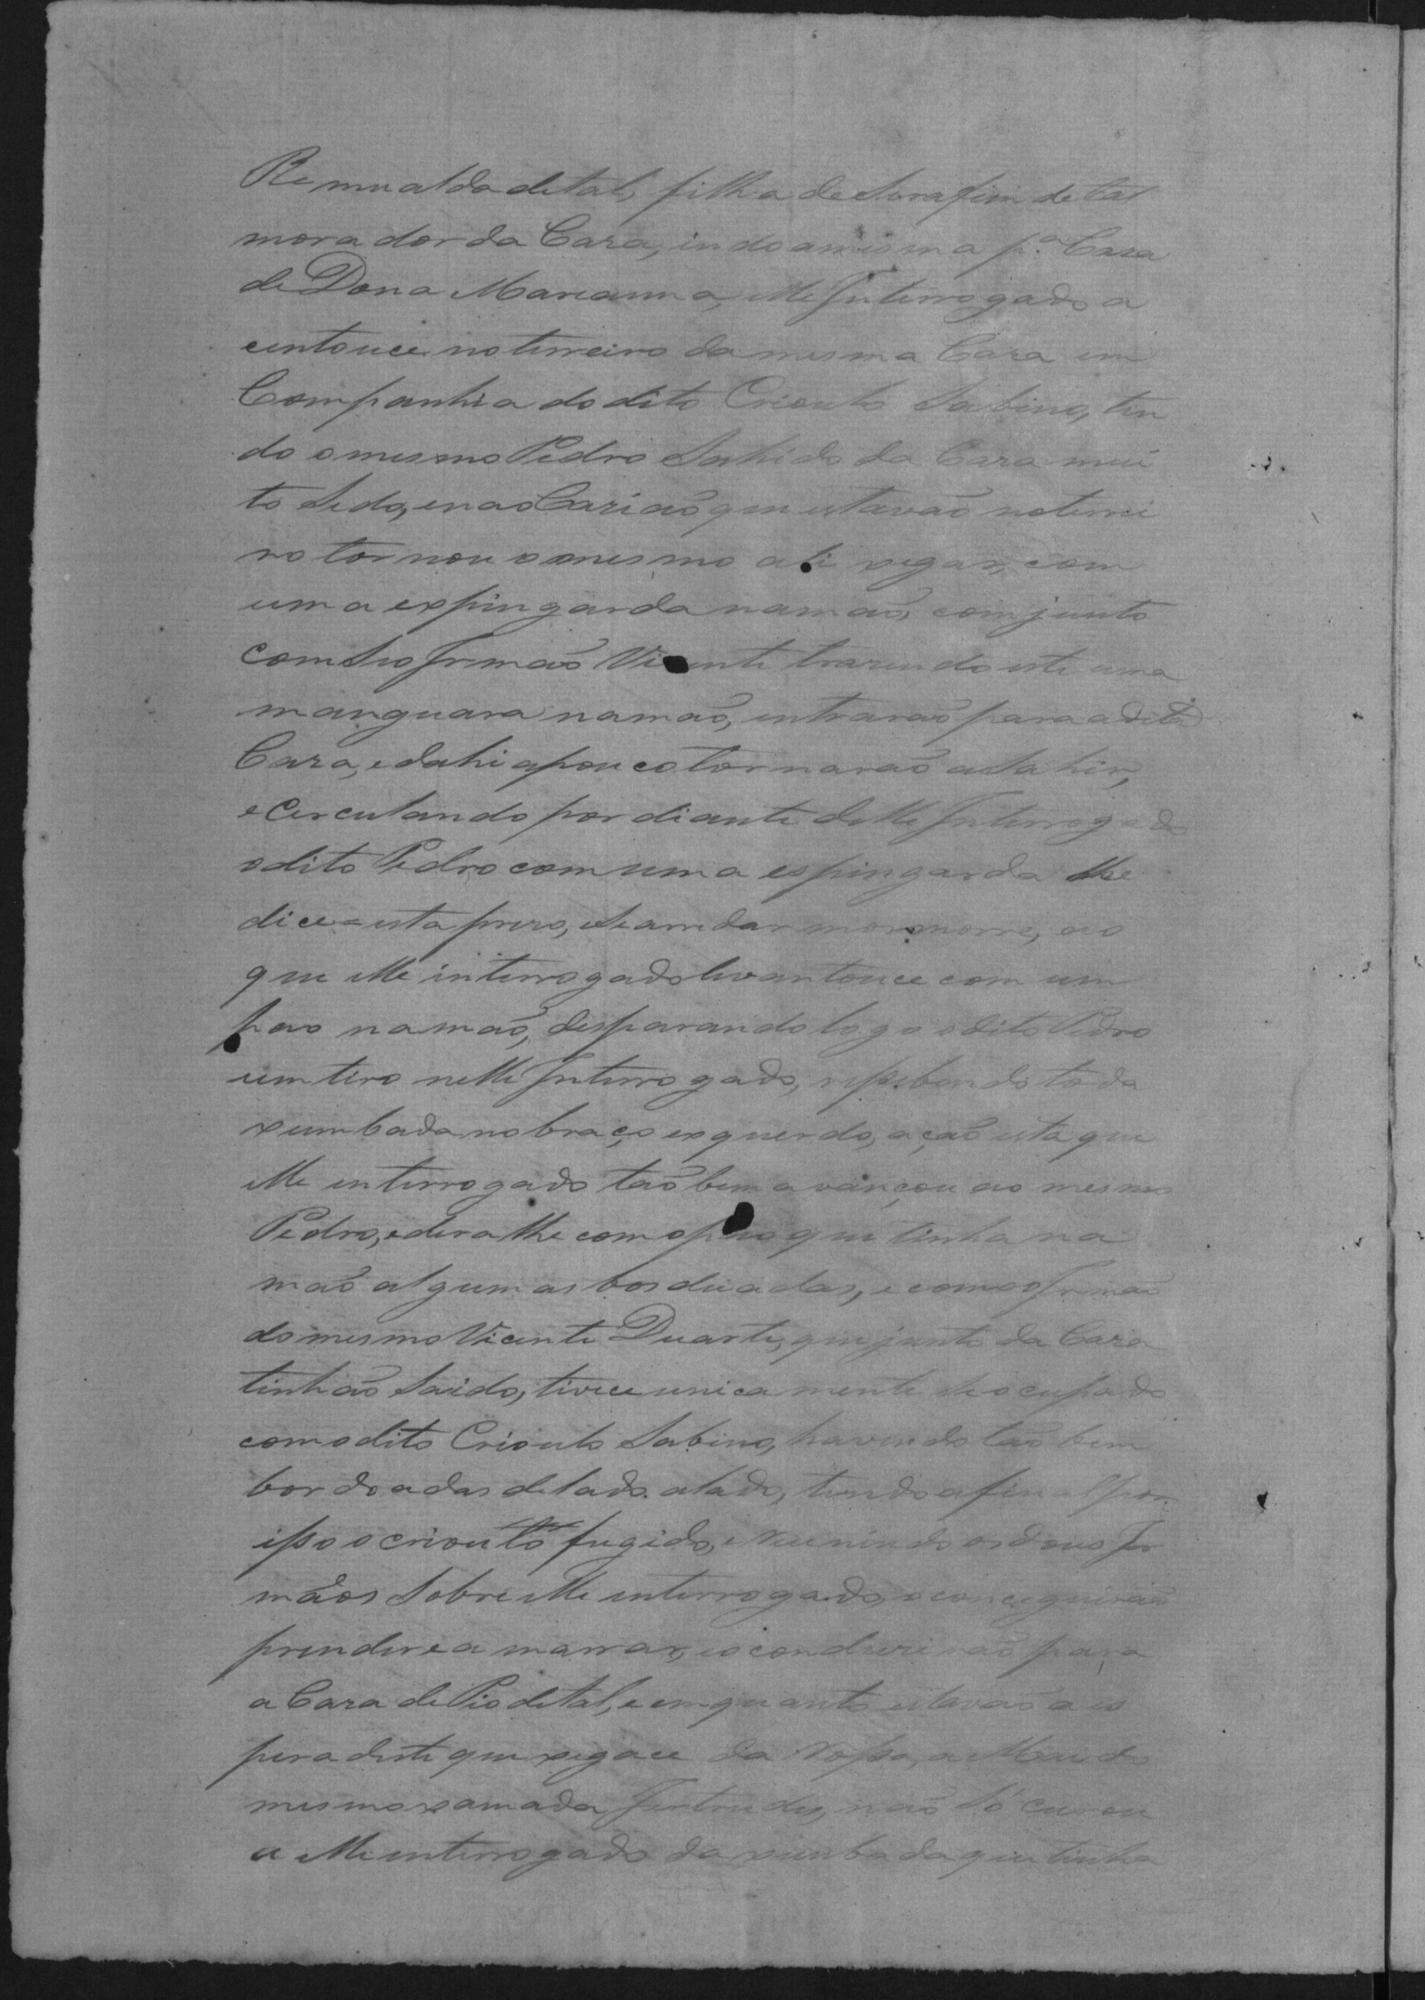 Remualda de tal, filha de Serafim de tal
morador da Caza, indo a mesma p.ª Caza
de Dona Marianna, elle Interrogado a
centouce no terreiro da mesma Caza em
Companhia do dito Crioulo Sabino, ten
do o mesmo Pedro Sahido da Caza mui
to Sedo, e na o Cazião que estavão no terrei
ro tornou o mesmo ali xegar, com
uma expingarda na mão, com junto
com seo Irmão Vicente trazendo este uma
manguara na mão, entrarão para a dita
Caza, e dahi a pouco tornarão a Sahir,
e Cerculando por diante delle Interrogado
o dito Pedro com uma espingarda lhe
dice = esta prezo, e se arredar morre, ao
que elle interrogado levantouce com um
pao na mão, desparando logo o dito Pedro
um tiro nelle Interrogado, resebendo toda
xumbada no braço exquerdo, ação esta que
elle interrogado tão bem avançou ao mesmo
Pedro, e dera lhe com o pao que tinha na
mão algumas borduadas, e com o Irmão
do mesmo Vicente Duarte, que junto da Caza
tinhão Saido, tivece unicamente se ocupado
com o dito Crioulo Sabino, havendo tão bem
bordoadas de lado a lado, tendo afinal por
isso o crioulo fugido, e reunindo os dous Ir
mãos Sobre elle interrogado, o conseguirão
prender e a marrar, e o conduzirão para
a Caza de Pio de tal, e emquanto estavão a es
pera deste que xegace da rossa, a Mai do
mesmo xamada Gertrudes, não Só curou
a elle interrogado da xumbada que tinha